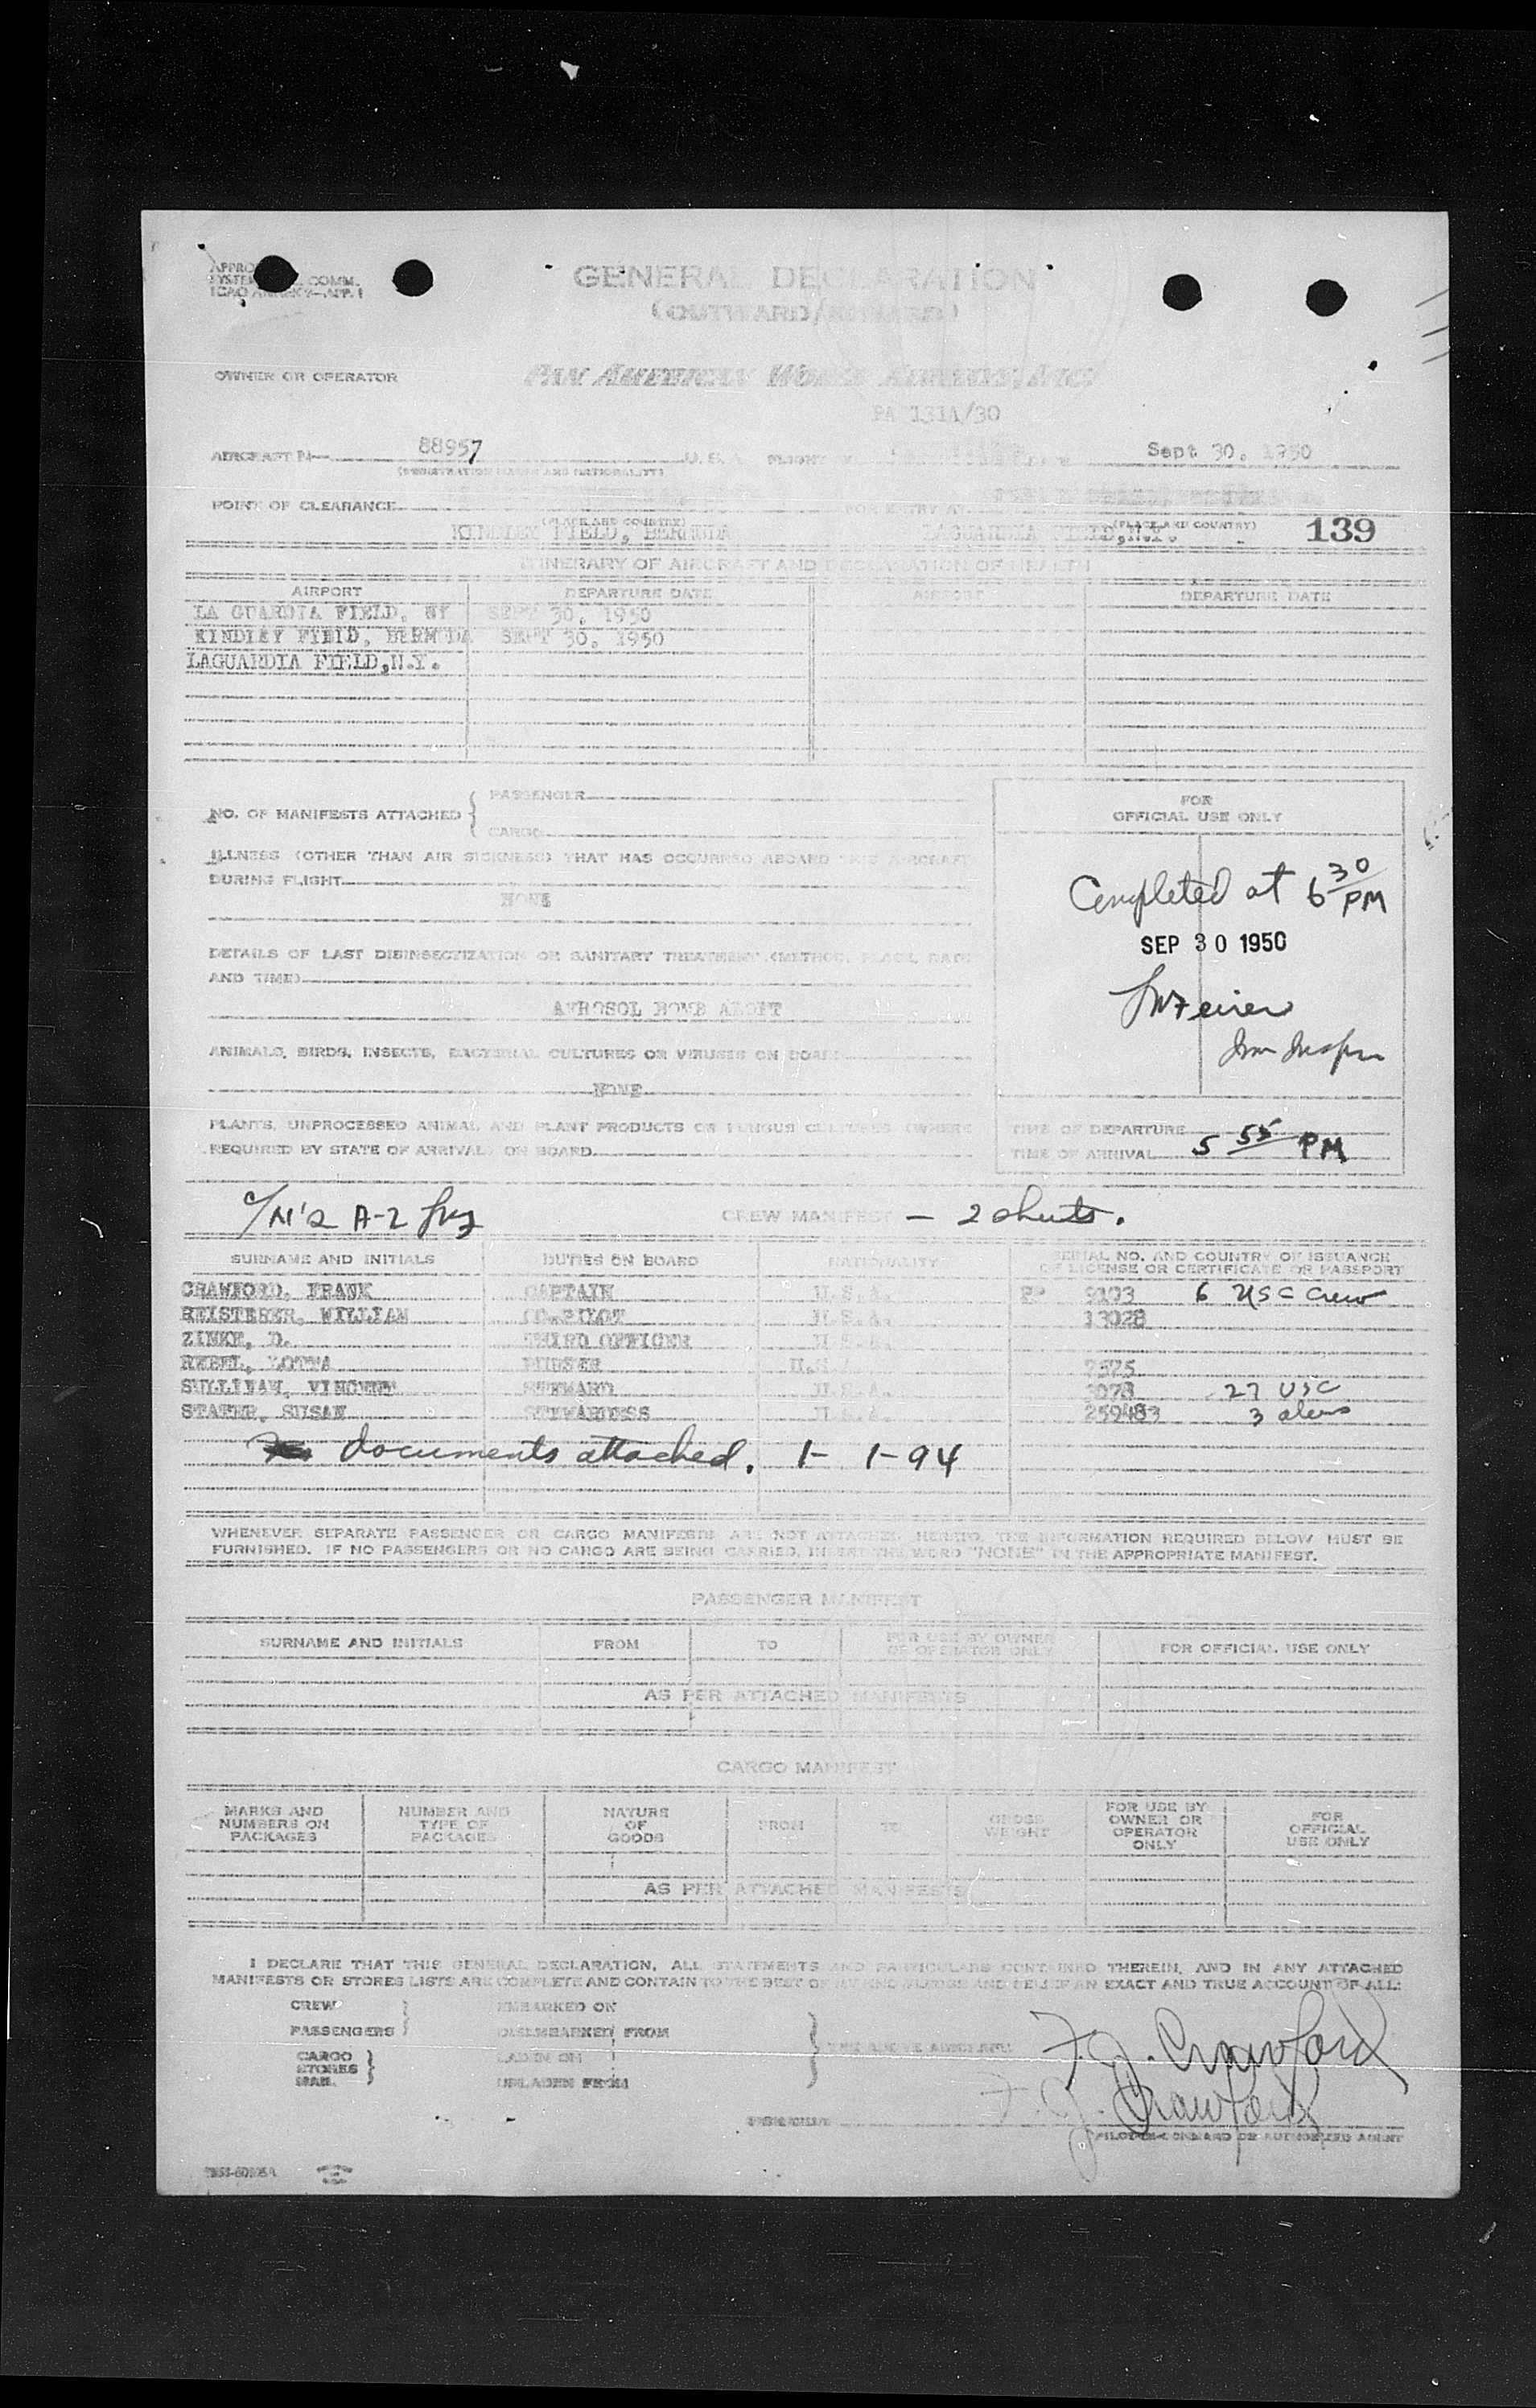 GENERAL DECLARATION
(OUTWARD/INWARD)
OWNER OR OPERATOR PAN AMERICAN WORLD AIRWAYS, INC.
PA 131A/30
AIRCRAFT N— 88957 U. S. A. FLIGHT Sept 30, 1950
(REGISTRATION MARKS AND NATIONALITY)
POINT OF CLEARANCE FOR ENTRY AT
(PLACE AND COUNTRY) (PLACE AND COUNTRY)
KINDLEY FIELD, BERMUDA LAGUARDIA FIELD,N.Y. 139
ITINERARY OF AIRCRAFT AND DECLARATION OF HEALTH
AIRPORT DEPARTURE DATE AIRPORT DEPARTURE DATE
LA GUARDIA FIELD, NY SEPT 30, 1950
KINDLEY FIELD, BERMUDA SEPT 30, 1950
LAGUARDIA FIELD,N.Y.
NO. OF MANIFESTS ATTACHED { PASSENGER
CARGO
FOR
OFFICIAL USE ONLY
ILLNESS (OTHER THAN AIR SICKNESS) THAT HAS OCCURRED ABOARD THIS AIRCRAFT
DURING FLIGHT
NONE
Completed at 6 30 PM
SEP 30 1950
DETAILS OF LAST DISINSECTIZATION OR SANITARY TREATMENT (METHOD, PLACE, DATE
AND TIME)
AEROSOL BOMB ALOFT
ANIMALS, BIRDS, INSECTS, BACTERIAL CULTURES OR VIRUSES ON BOARD
NONE
PLANTS, UNPROCESSED ANIMAL AND PLANT PRODUCTS OR FUNGUS CULTURES (WHERE
REQUIRED BY STATE OF ARRIVAL) ON BOARD
TIME OF DEPARTURE
TIME OF ARRIVAL 5 55 PM
CREW MANIFEST — 2 sheets.
SURNAME AND INITIALS DUTIES ON BOARD NATIONALITY SERIAL NO. AND COUNTRY OF ISSUANCE
OF LICENSE OR CERTIFICATE OR PASSPORT
CRAWFORD, FRANK CAPTAIN U.S.A. PP 9103 6 USC Crew
REISTERER, WILLIAM CO-PILOT U.S.A. 13028
ZINKE, D. THIRD OFFICER U.S.A.
REBEL, LOTTA PURSER U.S.A. 2575
SULLIVAN, VINCENT STEWARD U.S.A. 3078 27 USC
STATER, SUSAN STEWARDESS U.S.A. 259483 3 aliens
documents attached. 1- 1-94
WHENEVER SEPARATE PASSENGER OR CARGO MANIFESTS ARE NOT ATTACHED HERETO, THE INFORMATION REQUIRED BELOW MUST BE
FURNISHED. IF NO PASSENGERS OR NO CARGO ARE BEING CARRIED, INSERT THE WORD "NONE" IN THE APPROPRIATE MANIFEST.
PASSENGER MANIFEST
SURNAME AND INITIALS FROM TO FOR USE BY OWNER
OR OPERATOR ONLY FOR OFFICIAL USE ONLY
AS PER ATTACHED MANIFESTS
CARGO MANIFEST
MARKS AND
NUMBERS ON
PACKAGES
NUMBER AND
TYPE OF
PACKAGES
NATURE
OF
GOODS
FROM
TO
GROSS
WEIGHT
FOR USE BY
OWNER OR
OPERATOR
ONLY
FOR
OFFICIAL
USE ONLY
AS PER ATTACHED MANIFESTS
I DECLARE THAT THIS GENERAL DECLARATION, ALL STATEMENTS AND PARTICULARS CONTAINED THEREIN, AND IN ANY ATTACHED
MANIFESTS OR STORES LISTS ARE COMPLETE AND CONTAIN TO THE BEST OF MY KNOWLEDGE AND BELIEF AN EXACT AND TRUE ACCOUNT OF ALL:
CREW EMBARKED ON
PASSENGERS DISEMBARKED FROM
CARGO LADEN ON THE ABOVE AIRCRAFT:
STORES
MAIL UNLADEN FROM
F. J. Crawford
F. J. Crawford
SIGNATURE
PILOT-IN-COMMAND OR AUTHORIZED AGENT